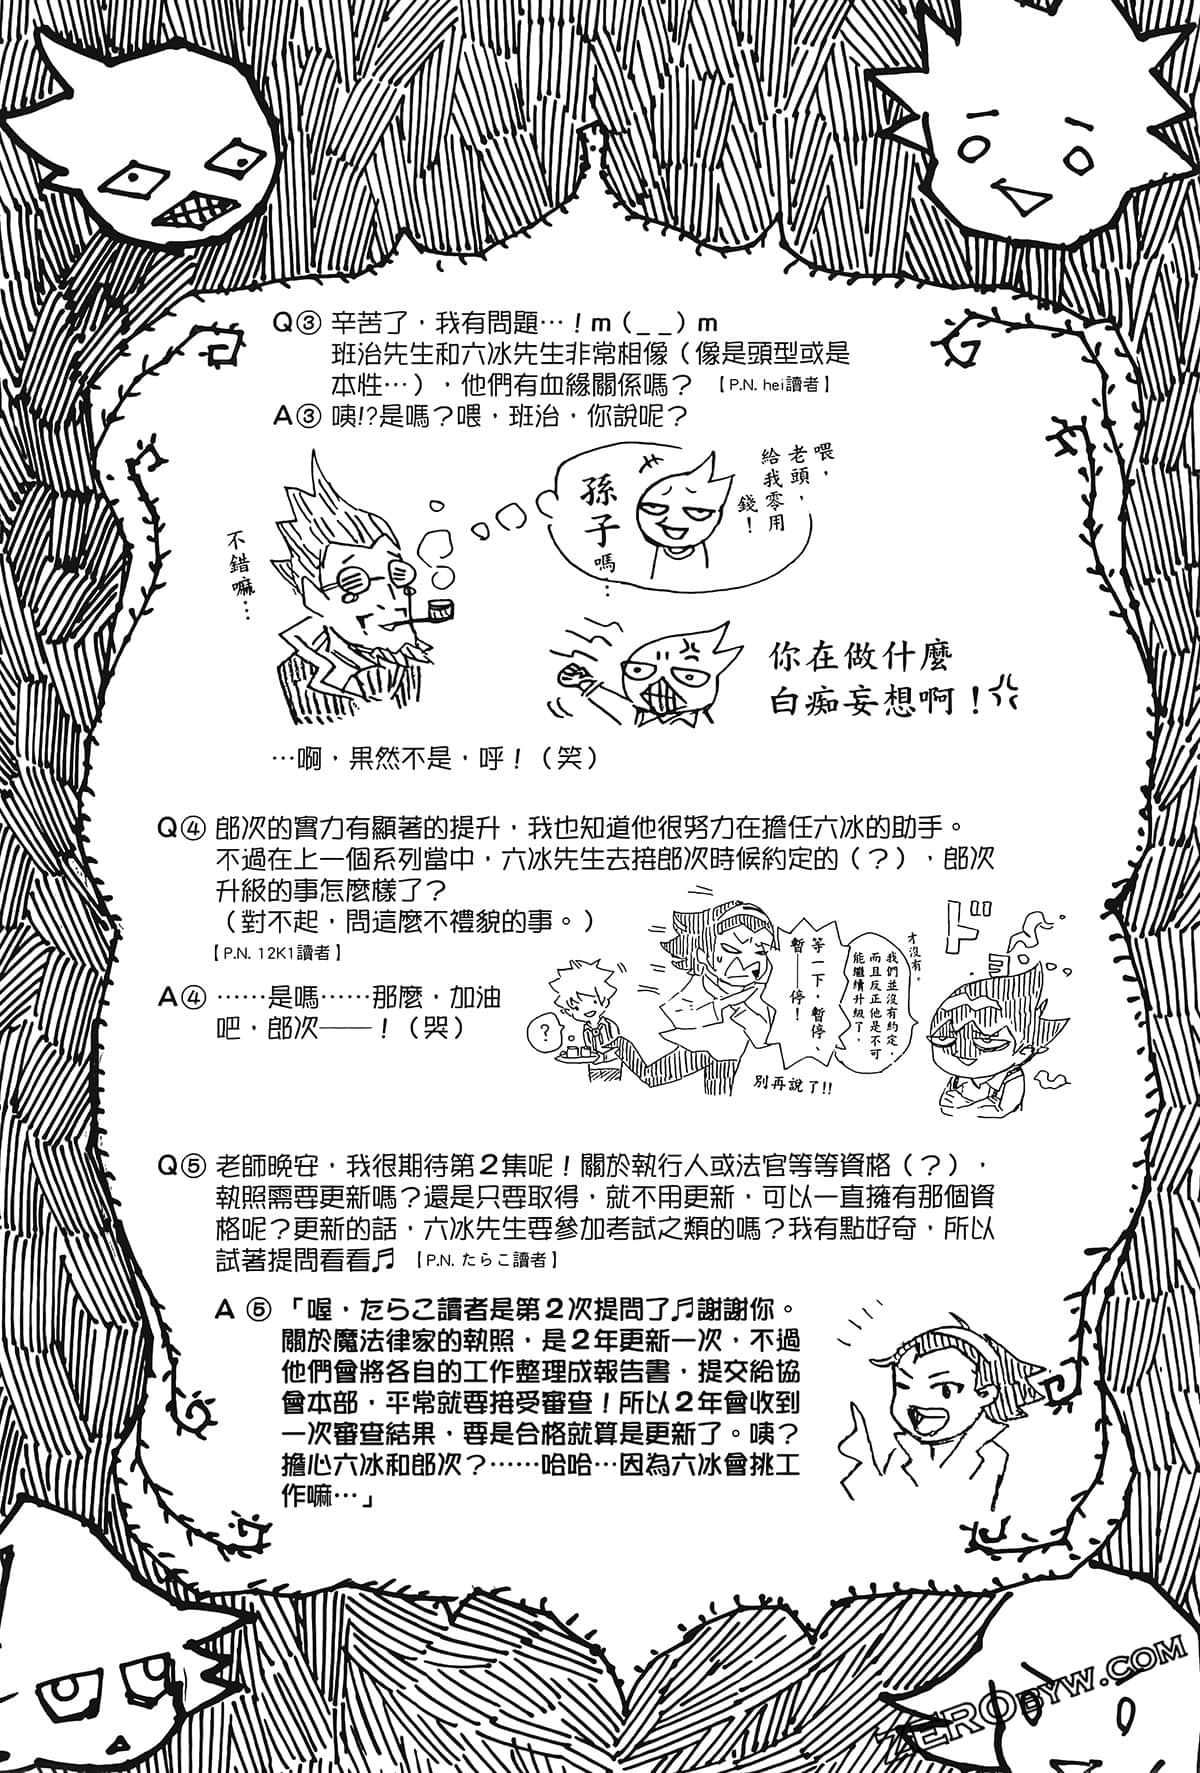 Q③ 辛苦了，我有問題…！m（_ _）m
班治先生和六冰先生非常相像（像是頭型或是
本性…），他們有血緣關係嗎？ 【P.N. hei讀者】
A③ 咦!?是嗎？喂，班治，你說呢？
喂，
老頭，
給我零用
錢！
孫子嗎…
不錯嘛…
你在做什麼
白痴妄想啊！
…啊，果然不是，呼！（笑）
Q④ 郎次的實力有顯著的提升，我也知道他很努力在擔任六冰的助手。
不過在上一個系列當中，六冰先生去接郎次時候約定的（？），郎次
升級的事怎麼樣了？
（對不起，問這麼不禮貌的事。）
【P.N. 12K1讀者】
A④ ……是嗎……那麼，加油
吧，郎次——！（哭）
才沒有。
我們並沒有約定，
而且反正他是不可
能繼續升級了，
等一下，暫停、
暫——停！
別再說了!!
？
ド
ヨ
Q⑤ 老師晚安，我很期待第２集呢！關於執行人或法官等等資格（？），
執照需要更新嗎？還是只要取得，就不用更新，可以一直擁有那個資
格呢？更新的話，六冰先生要參加考試之類的嗎？我有點好奇，所以
試著提問看看♬ 【P.N. たらこ讀者】
A⑤ 「喔，たらこ讀者是第２次提問了♬謝謝你。
關於魔法律家的執照，是２年更新一次，不過
他們會將各自的工作整理成報告書，提交給協
會本部，平常就要接受審查！所以２年會收到
一次審查結果，要是合格就算是更新了。咦？
擔心六冰和郎次？……哈哈…因為六冰會挑工
作嘛…」
ZEROBYW.COM